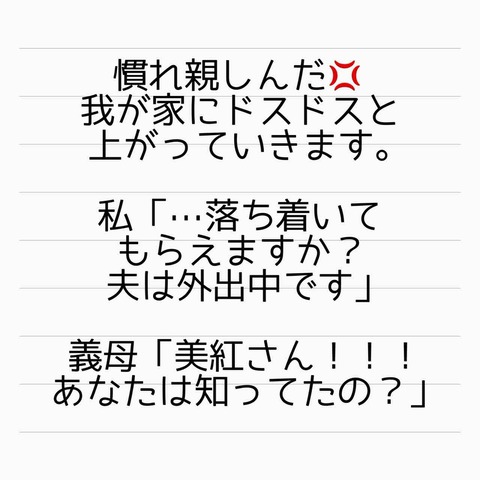 慣れ親しんだ💢
我が家にドスドスと
上がっていきます。
私「…落ち着いて
もらえますか？
夫は外出中です」
義母「美紅さん！！！
あなたは知ってたの？」